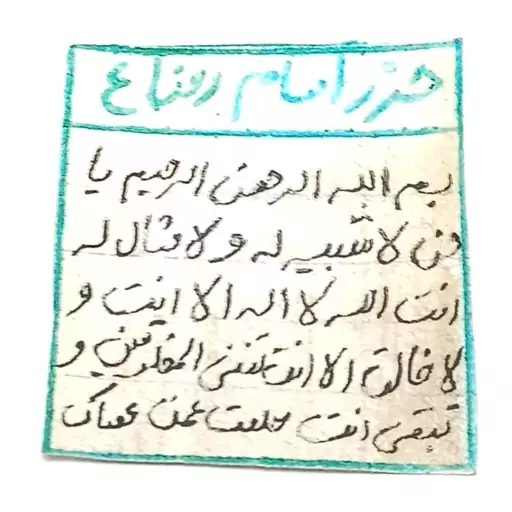 حرز امام رضا ع
بسم الله الرحمن الرحیم یا
من لا شبیه له و لا مثال له
انت الله لا اله الا انت و
لا خالق الا انت تفنی المخلوقین و
تبقی انت حلمت عمن عصاک